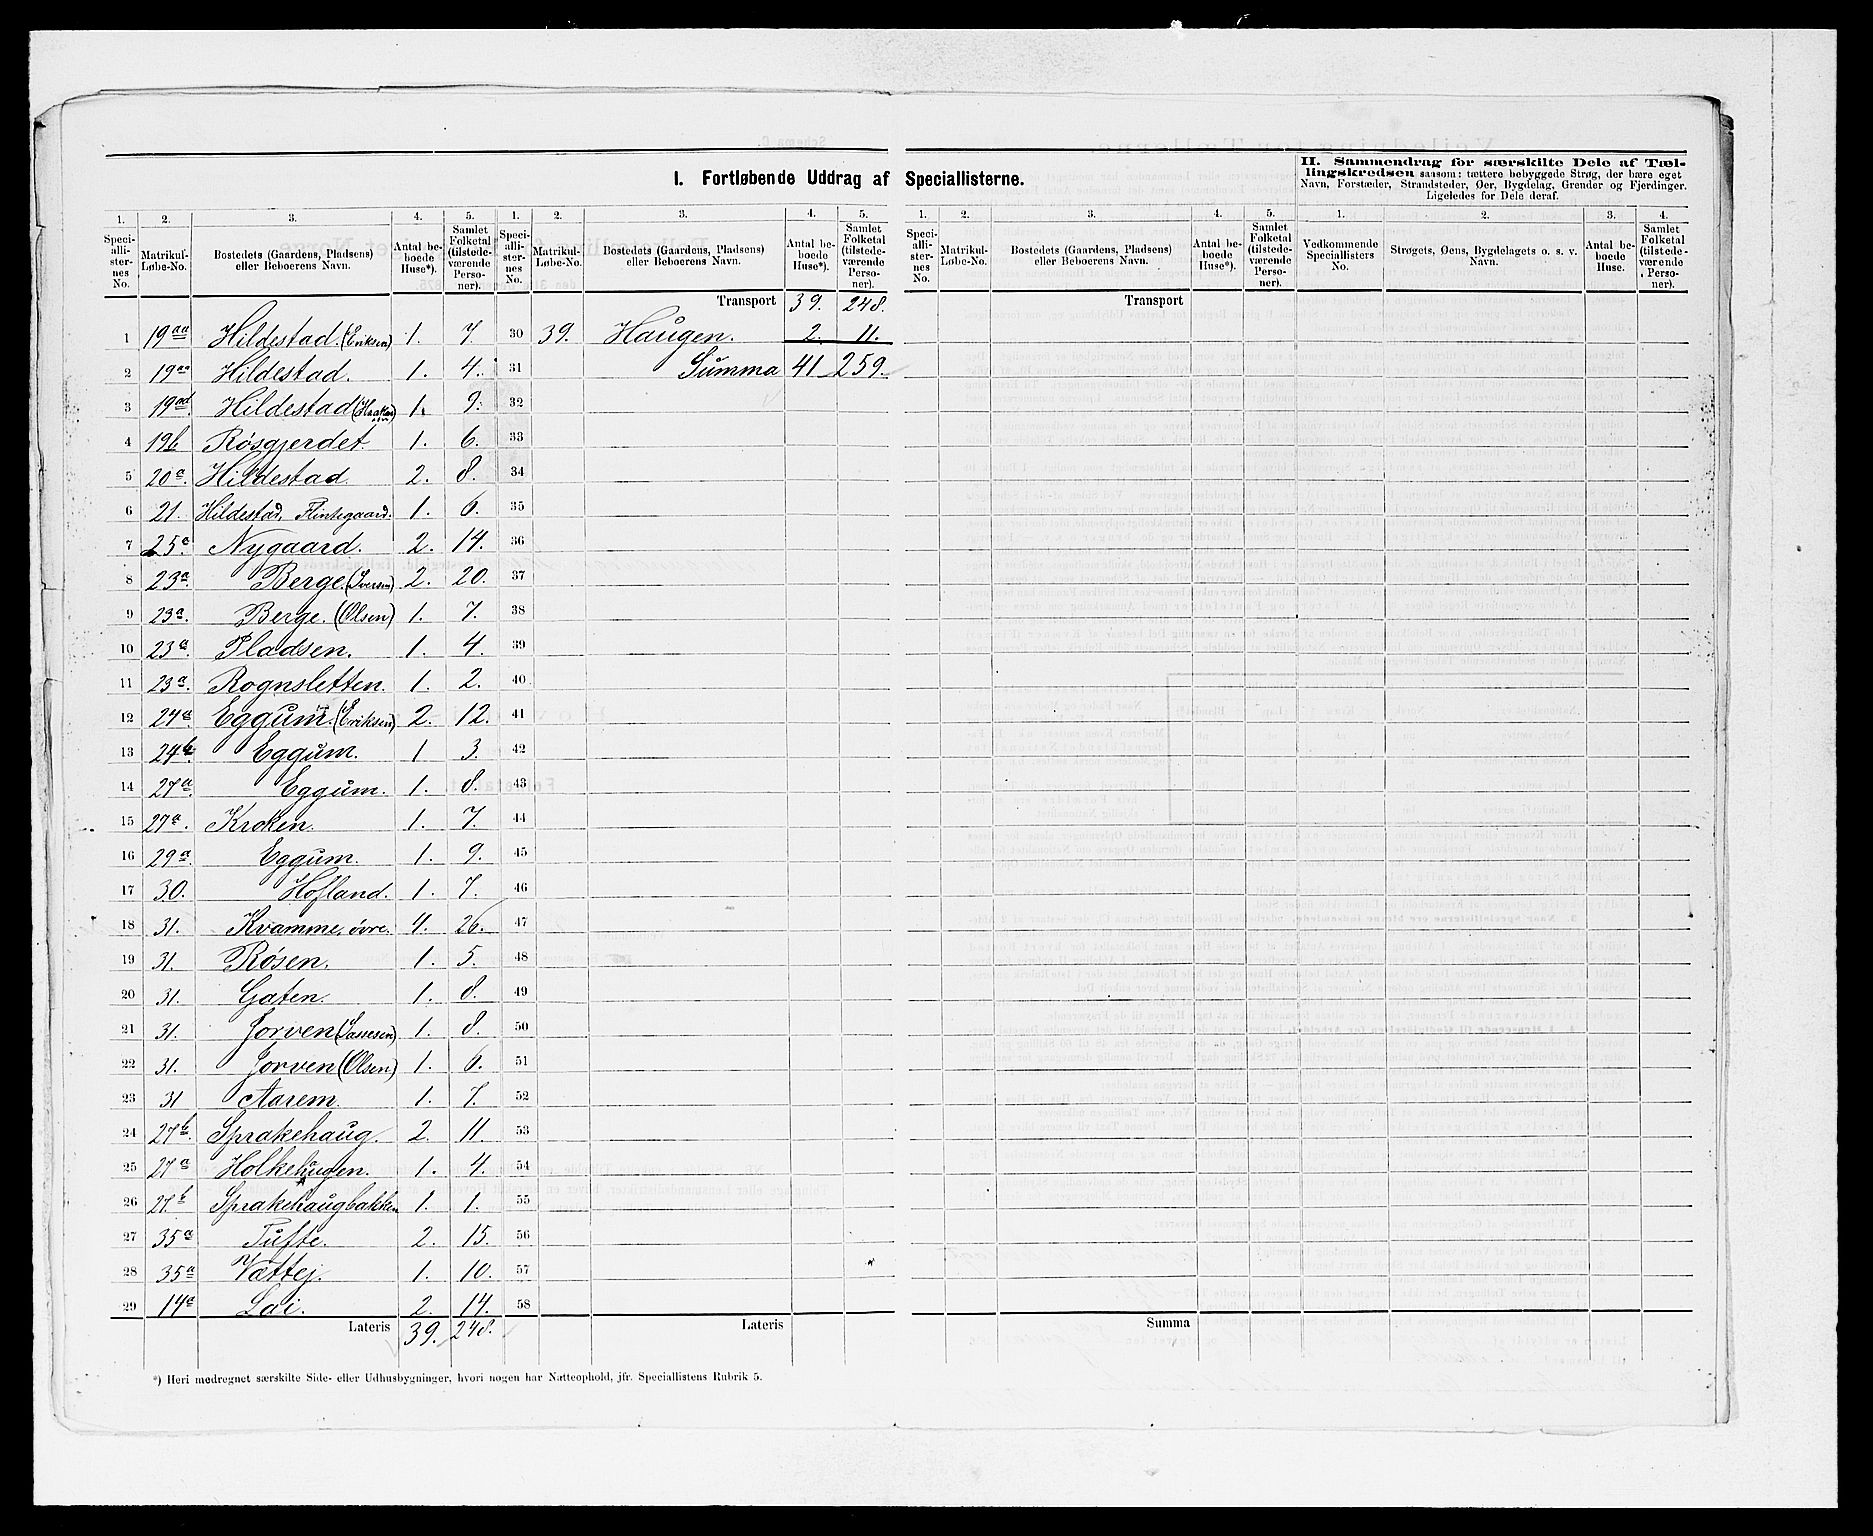 I. Fortløbende Uddrag af Speciallisterne.
II. Sammendrag for særskilte Dele af Tællingskredsen saasom: tættere bebyggede Strøg, der bære eget
Navn, Forstæder, Strandsteder, Øer, Bygdelag, Grender og Fjerdinger.
Ligeledes for Dele deraf.
1. 2. 3. 4. 5. 1. 2. 3. 4. 5. 1. 2. 3. 4. 5. 1. 2. 3. 4.
Speciallisternes No. Matrikul-Løbe-No. Bostedets (Gaardens, Pladsens) eller Beboerens Navn. Antal beboede Huse*). Samlet Folketal (tilstedeværende Personer).
Speciallisternes No. Matrikul-Løbe-No. Bostedets (Gaardens, Pladsens) eller Beboerens Navn. Antal beboede Huse*). Samlet Folketal (tilstedeværende Personer).
Speciallisternes No. Matrikul-Løbe-No. Bostedets (Gaardens, Pladsens) eller Beboerens Navn. Antal beboede Huse*). Samlet Folketal (tilstedeværende Personer).
Vedkommende Speciallisters No. Strøgets, Øens, Bygdelagets o. s. v. Navn. Antal beboede Huse. Samlet Folketal (tilstedeværende Personer).
Transport 39. 248. Transport
1 19aa Hildestad. (Eriksen) 1. 7. 30 39. Haugen. 2. 11.
2 19aa Hildestad. 1. 4. 31 Summa 41 259.
3 19ad Hildestad 1. 9. 32
4 19b Røsgjerdet 1. 6. 33
5 20a. Hildestad. 2. 8. 34
6 21. Hildestad, Flintegaard. 1. 6. 35
7 25a. Nygaard. 2. 14. 36
8 23a. Berge. (Iversen) 2. 20. 37
9 23a. Berge. (Olsen) 1. 7. 38
10 23a. Pladsen. 1. 4. 39
11 23a. Rognsletten. 1. 2. 40
12 24a Eggum. (Eriksen) 2. 12. 41
13 24b. Eggum. 1 3. 42
14 27a. Eggum. 1. 8. 43
15 27a. Kroken. 1. 7. 44
16 29a Eggum. 1. 9. 45
17 30. Hofland. 1. 7. 46
18 31. Kvamme, øvre. 4. 26. 47
19 31. Røsen. 1. 5. 48
20 31. Gaten. 1. 8. 49
21 31. Jorven 1. 8. 50
22 31. Jorven (Olsen) 1. 6. 51
23 31 Aarem. 1. 7. 52
24 27b. Sprakehaug. 2. 11. 53
25 27a Holkehugen. 1. 4. 54
26 27b Sprakehaugbakken 1. 1. 55
27 35a Tufte. 2. 15. 56
28 35a Vættej. 1. 10. 57
29 14a Loi. 2. 14. 58
Lateris 39. 248. Lateris Summa
*) Heri medregnet særskilte Side- eller Udhusbygninger, hvori nogen har Natteophold, jfr. Speciallistens Rubrik 5.